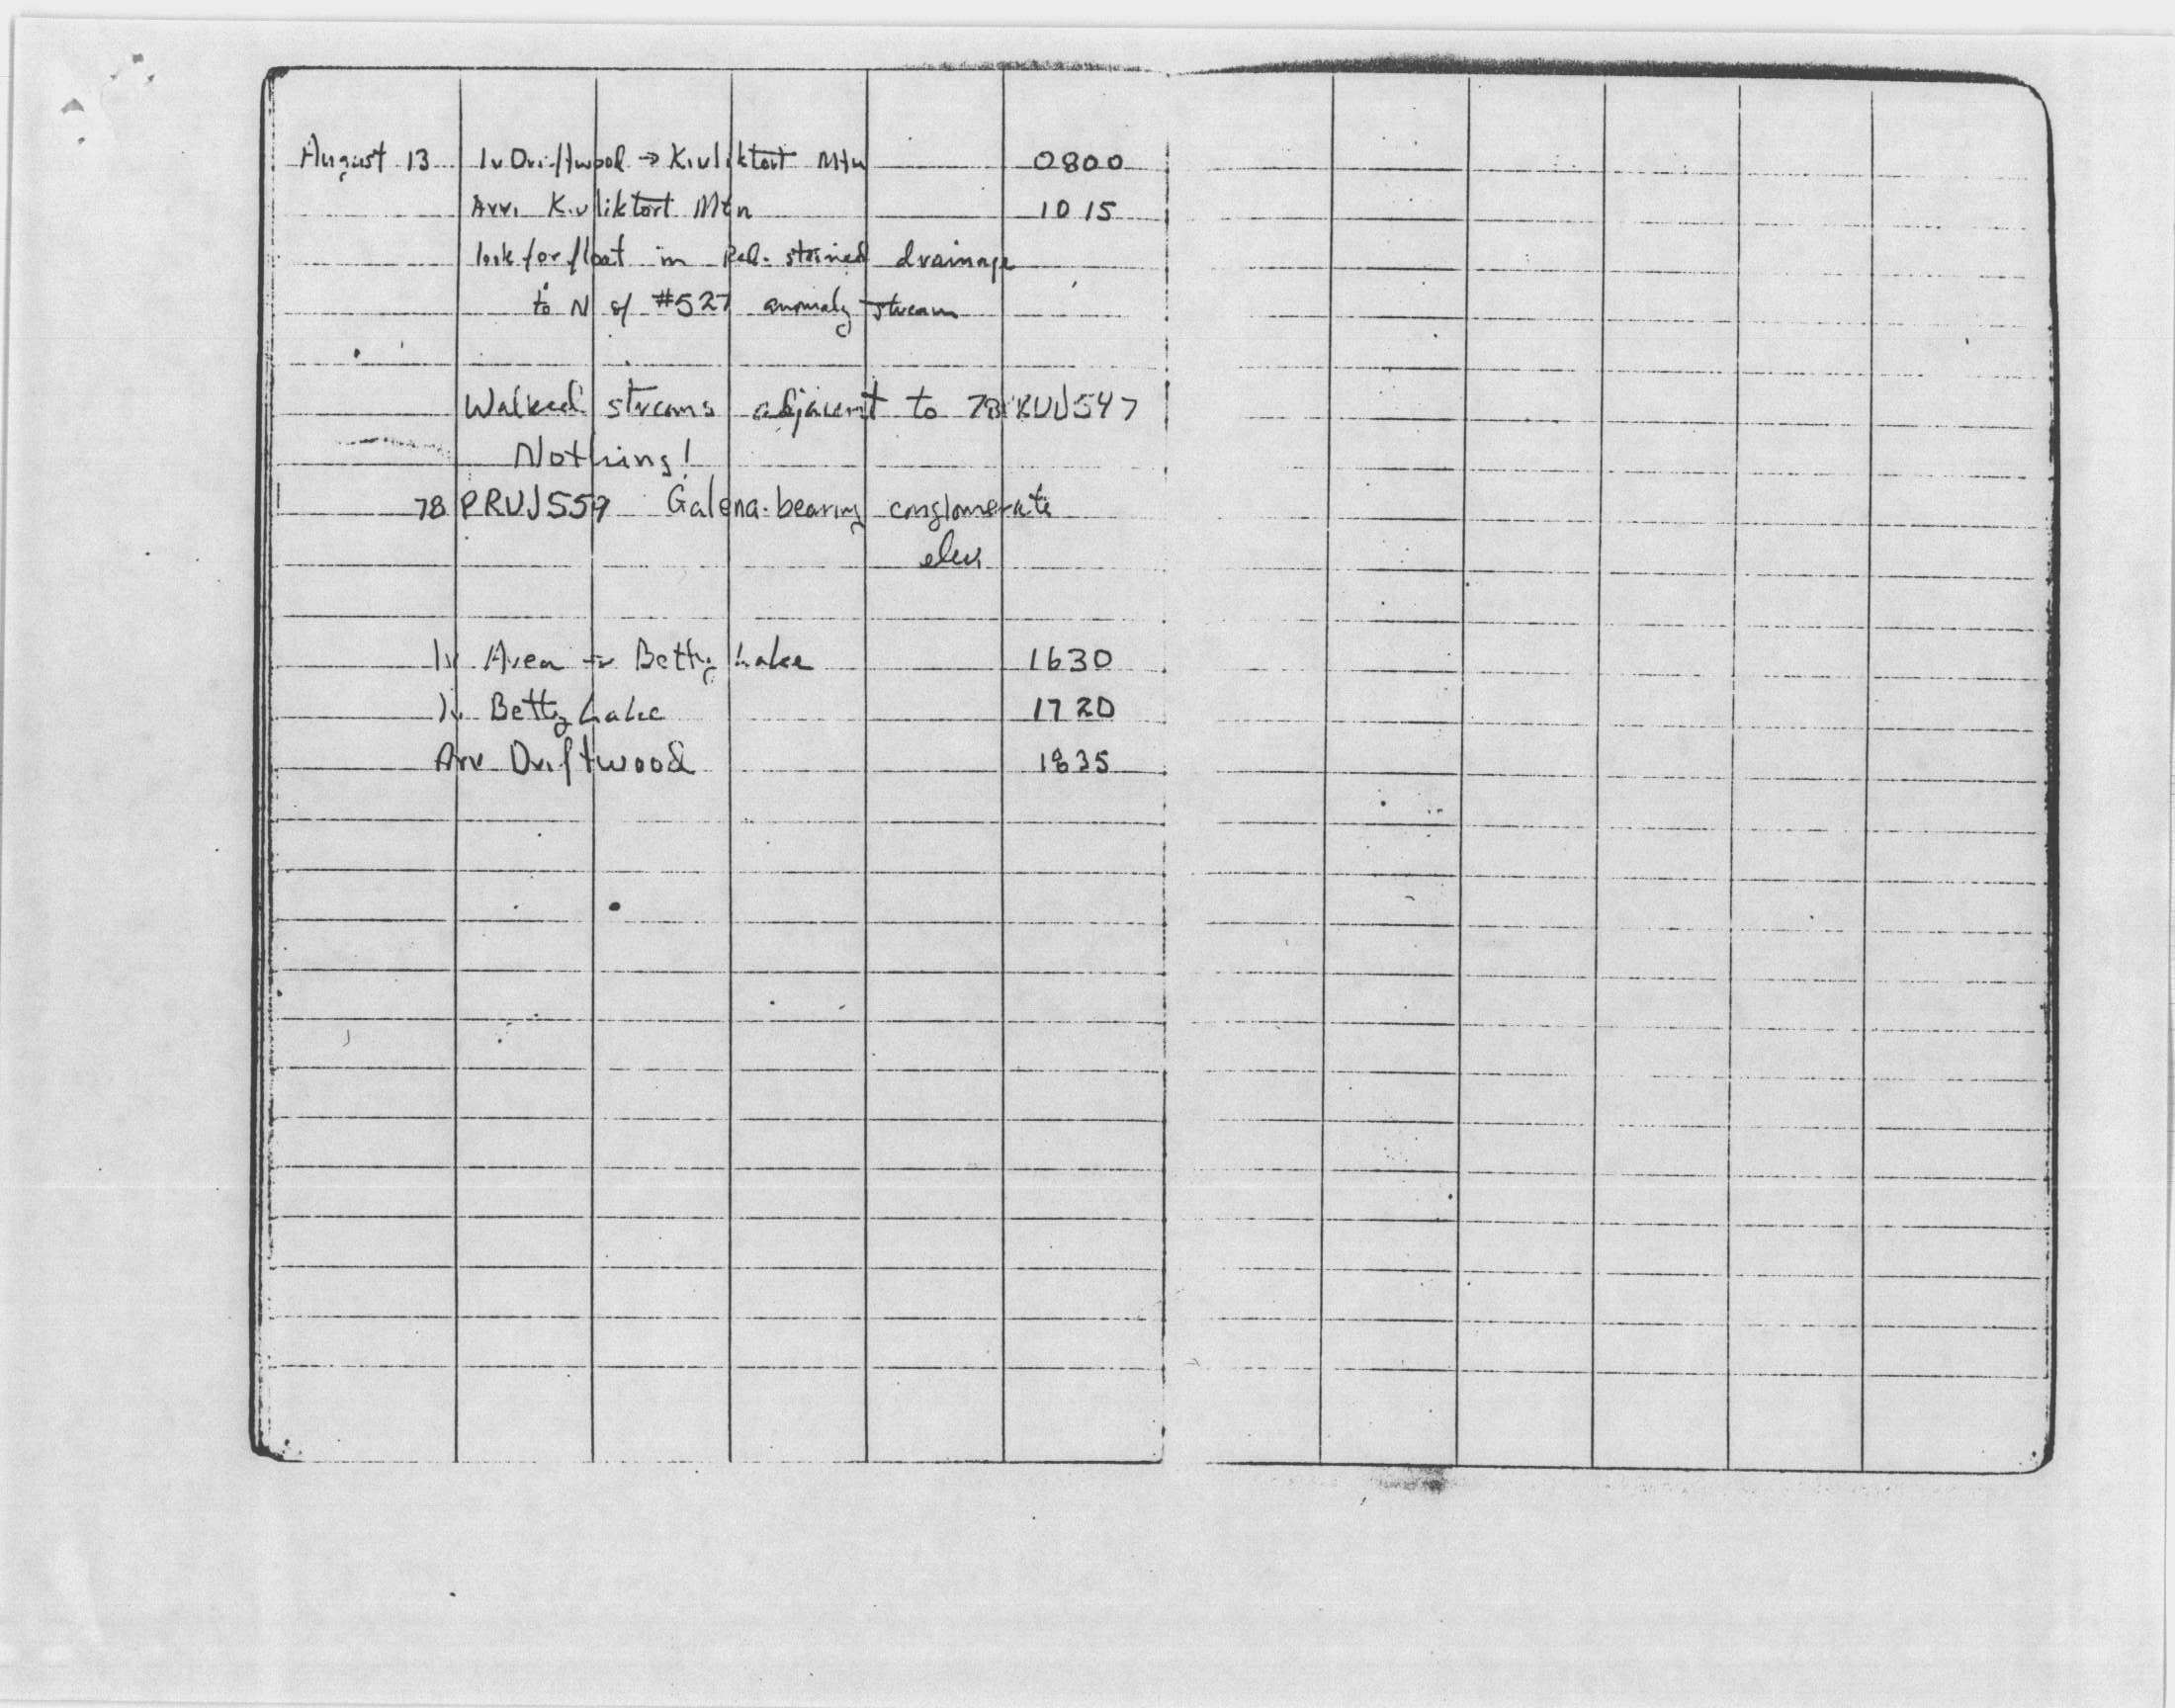 August 13 lv Driftwood → Kivliktort Mtn 0800
Arr. Kivliktort Mtn 1015
look for float in Red-stained drainage
to N of #527 anomaly stream
Walked streams adjacent to 547
Nothing!
78PRUJ559 Galena-bearing conglomerate
elev
lv Area → Betty Lake 1630
lv Betty Lake 1720
Arr Driftwood 1835